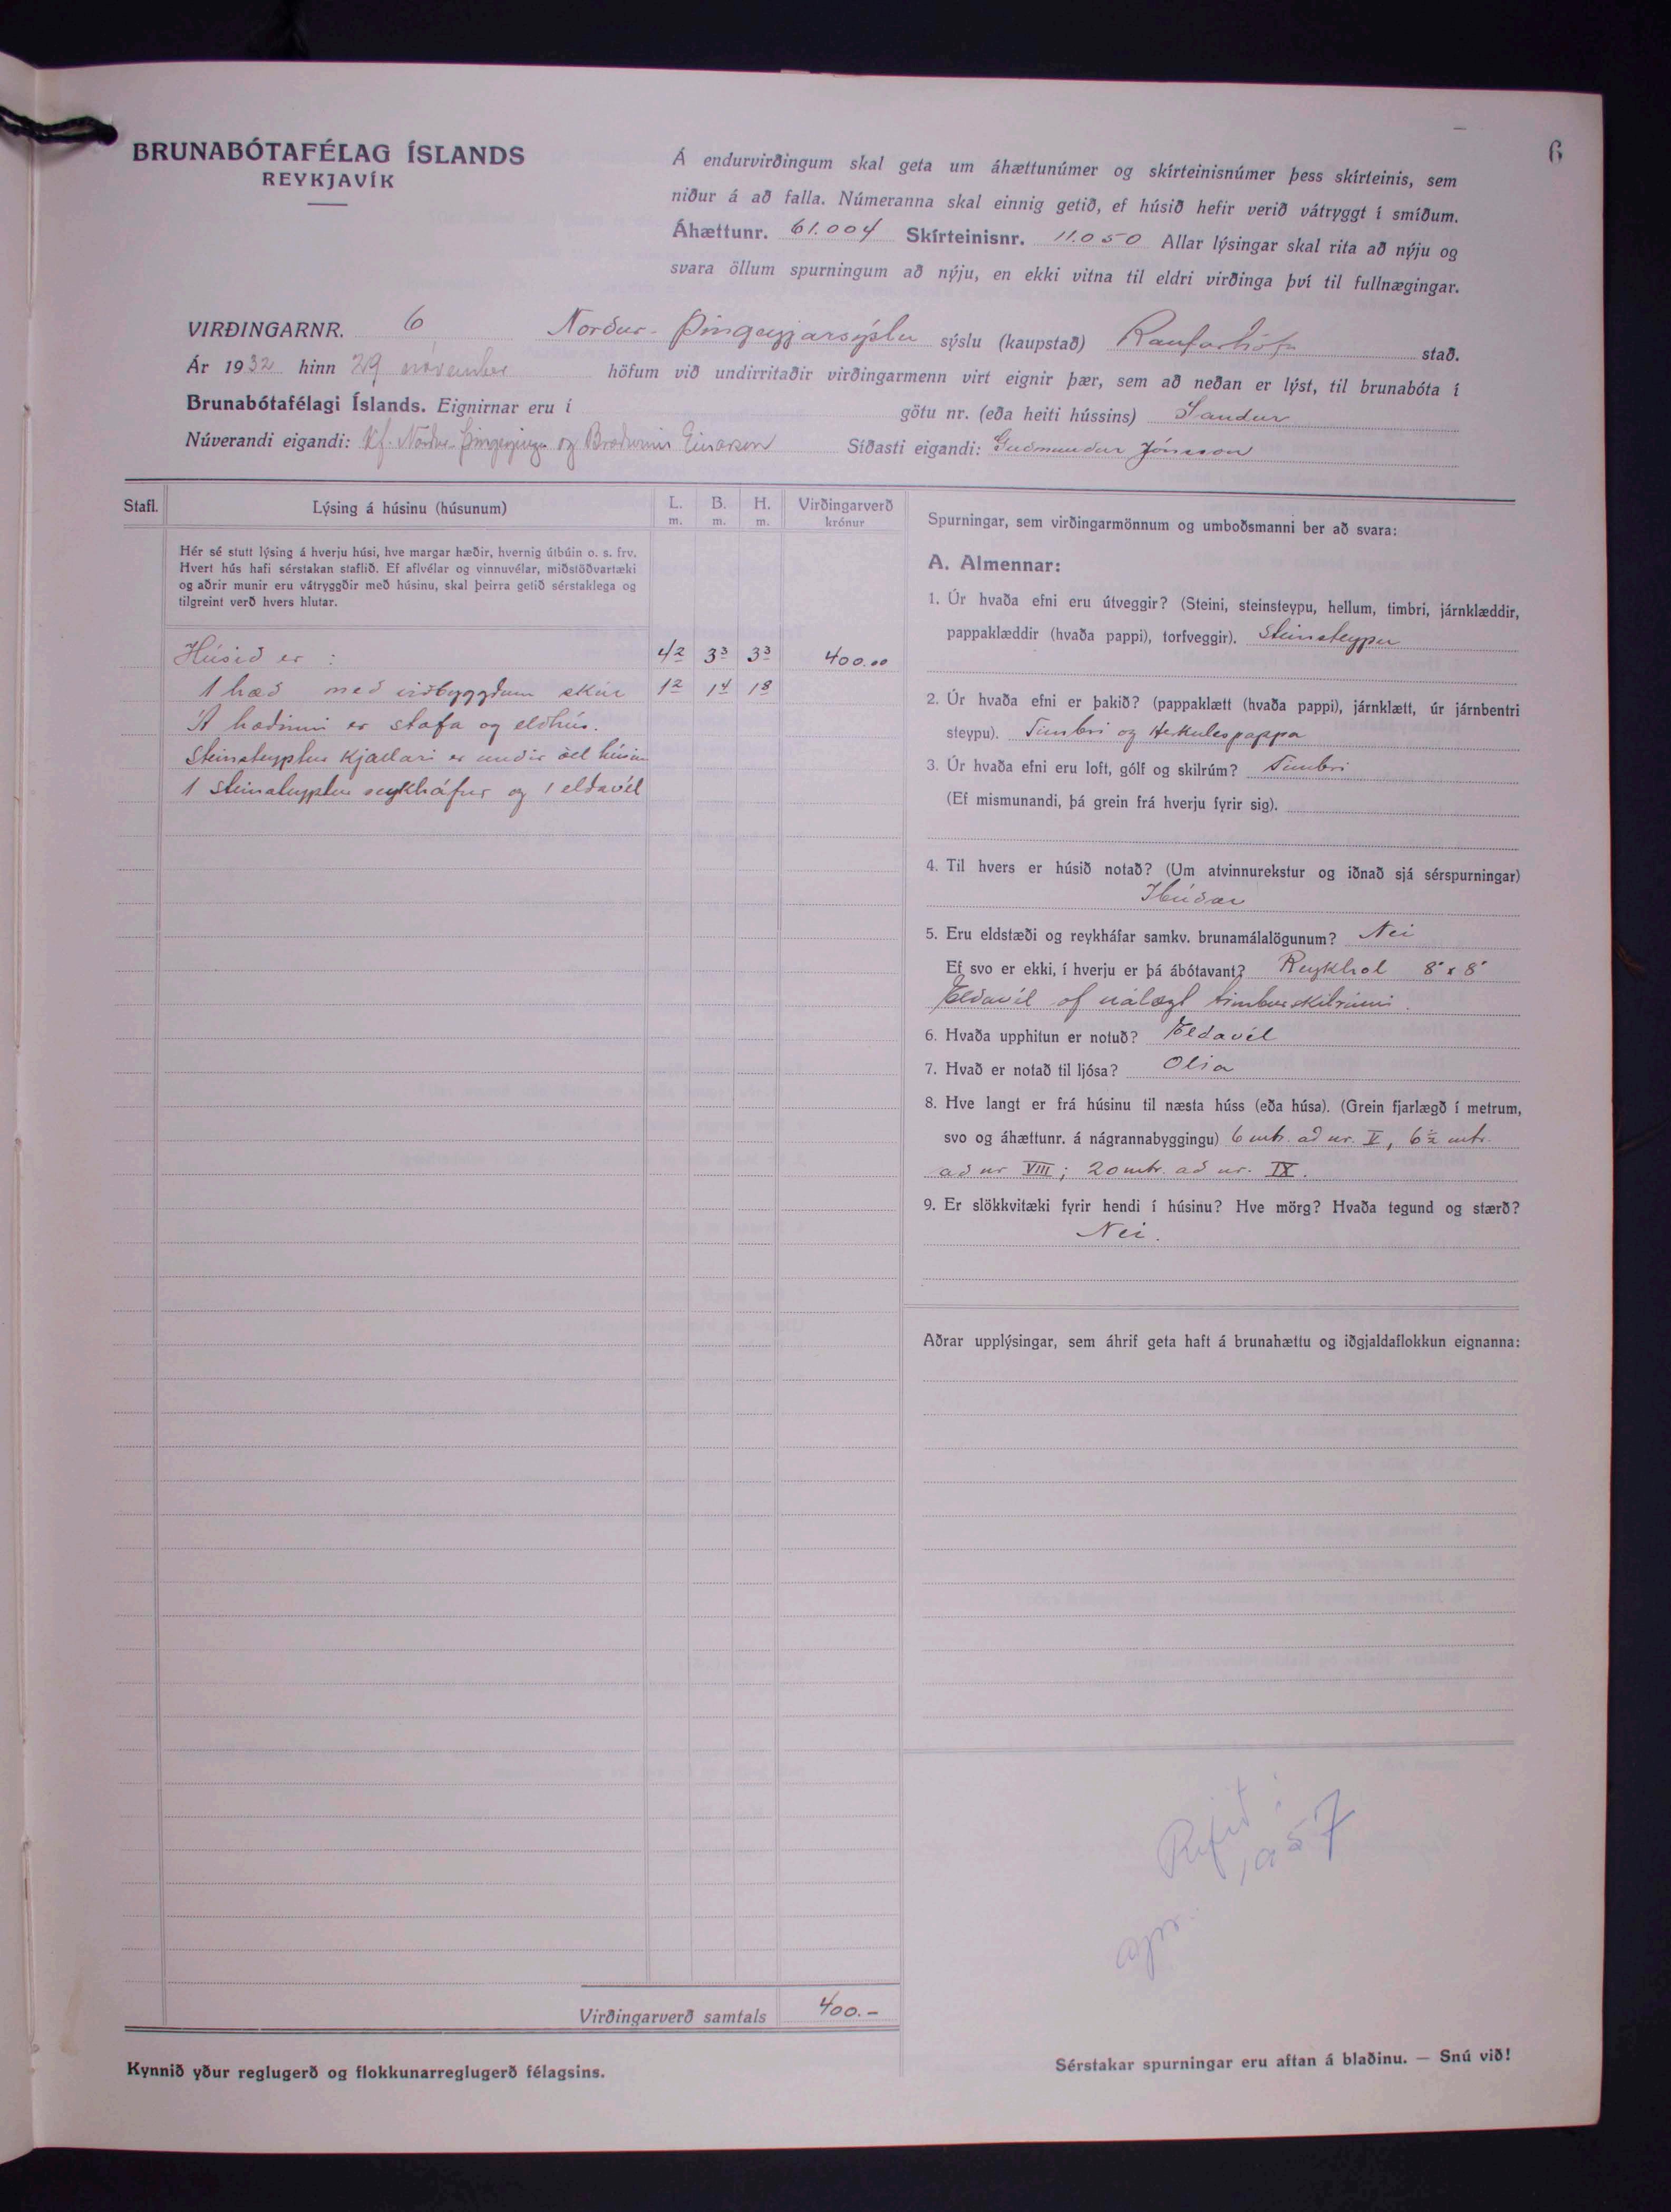 6
BRUNABÓTAFÉLAG ÍSLANDS
REYKJAVÍK
Á endurvirðingum skal geta um áhættunúmer og skírteinisnúmer þess skírteinis, sem
niður á að falla. Númeranna skal einnig getið, ef húsið hefir verið vátryggt í smíðum.
Áhættunr. 61.004 Skírteinisnr. 11.050 Allar lýsingar skal rita að nýju og
svara öllum spurningum að nýju, en ekki vitna til eldri virðinga því til fullnægingar.
VIRÐINGARNR. 6 Norður-Þingeyjarsýslu sýslu (kaupstað) Raufarhöfn stað.
Ár 1932 hinn 29 nóvember höfum við undirritaðir virðingarmenn virt eignir þær, sem að neðan er lýst, til brunabóta í
Brunabótafélagi Íslands. Eignirnar eru í götu nr. (eða heiti hússins) Sandur
Núverandi eigandi: Kf. Norður-Þingeyinga og Bræðurnir Einarsson Síðasti eigandi: Guðmundur Jónsson
Stafl. Lýsing á húsinu (húsunum) L. m. B. m. H. m. Virðingarverð krónur
Hér sé stutt lýsing á hverju húsi, hve margar hæðir, hvernig útbúin o. s. frv.
Hvert hús hafi sérstakan staflið. Ef aflvélar og vinnuvélar, miðstöðvartæki
og aðrir munir eru vátryggðir með húsinu, skal þeirra getið sérstaklega og
tilgreint verð hvers hlutar.
Húsið er : 4² 3³ 3³ 400.00
1 hæð með viðbyggðum skúr 1² 1⁴ 1⁸
Á hæðinni er stofa og eldhús.
Steinsteyptur kjallari er undir öll húsin
1 steinsteyptur reykháfur og 1 eldavél
Virðingarverð samtals 400.-
Kynnið yður reglugerð og flokkunarreglugerð félagsins.
Spurningar, sem virðingarmönnum og umboðsmanni ber að svara:
A. Almennar:
1. Úr hvaða efni eru útveggir? (Steini, steinsteypu, hellum, timbri, járnklæddir,
pappaklæddir (hvaða pappi), torfveggir). Steinsteypu
2. Úr hvaða efni er þakið? (pappaklætt (hvaða pappi), járnklætt, úr járnbentri
steypu). Timbri og Herkulespappa
3. Úr hvaða efni eru loft, gólf og skilrúm? Timbri
(Ef mismunandi, þá grein frá hverju fyrir sig).
4. Til hvers er húsið notað? (Um atvinnurekstur og iðnað sjá sérspurningar)
Íbúðar
5. Eru eldstæði og reykháfar samkv. brunamálalögunum? Nei
Ef svo er ekki, í hverju er þá ábótavant? Reykhol 8" x 8"
Eldavél of nálægt timburskilrúmi.
6. Hvaða upphitun er notuð? Eldavél
7. Hvað er notað til ljósa? Olia
8. Hve langt er frá húsinu til næsta húss (eða húsa). (Grein fjarlægð í metrum,
svo og áhættunr. á nágrannabyggingu) 6 mtr. að nr. V, 6½ mtr.
að nr VIII; 20 mtr. að nr. IX.
9. Er slökkvitæki fyrir hendi í húsinu? Hve mörg? Hvaða tegund og stærð?
Nei.
Aðrar upplýsingar, sem áhrif geta haft á brunahættu og iðgjaldaflokkun eignanna:
Rifið
Sérstakar spurningar eru aftan á blaðinu. — Snú við!